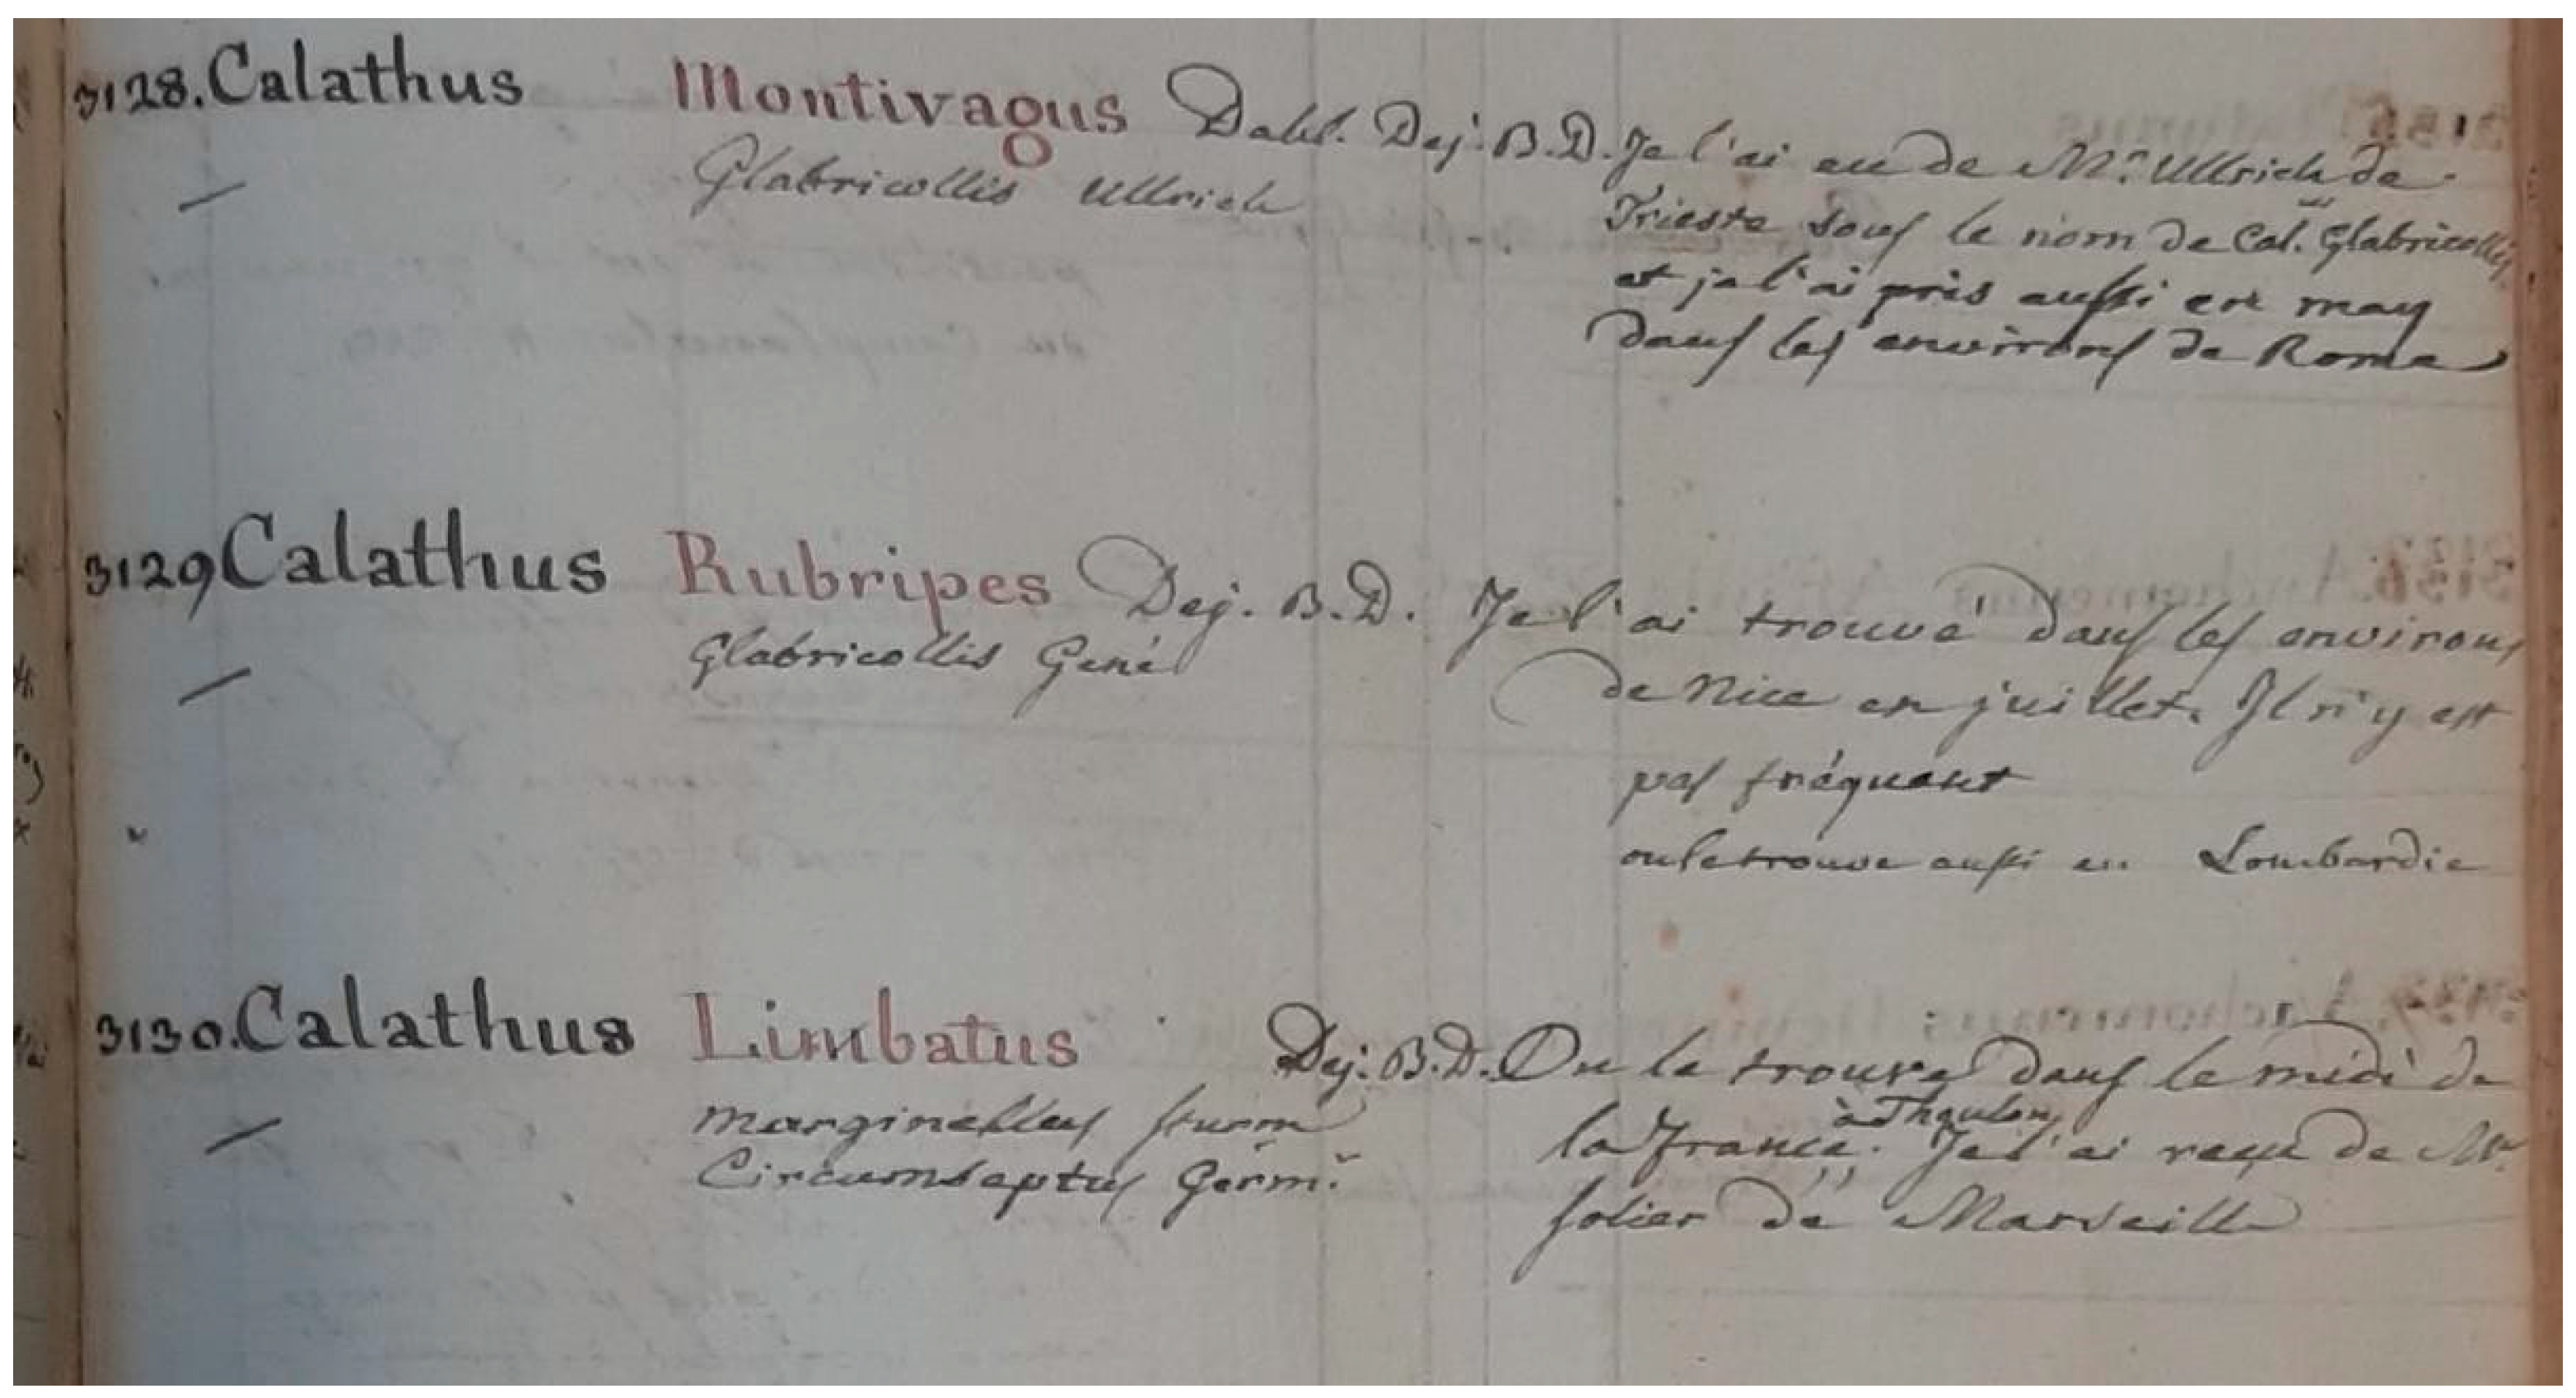 3128. Calathus Montivagus Dahl. Dej. B. D. Je l'ai eu de Mr. Ullrich de
Glabricollis Ullrich
Trieste sous le nom de Cal. Glabricollis
et je l'ai pris aussi en may
dans les environs de Rome
3129 Calathus Rubripes Dej. B. D. Je l'ai trouvé dans les environs
Glabricollis Gené
de Nice en juillet. Il n'y est
pas fréquent
on le trouve aussi en Lombardie
3130. Calathus Limbatus Dej. B. D. On le trouve dans le midi de
Marginellus Sturm
à Thoulon
la France. Je l'ai reçu de Mr.
Circumseptus Germ.
Solier de Marseille